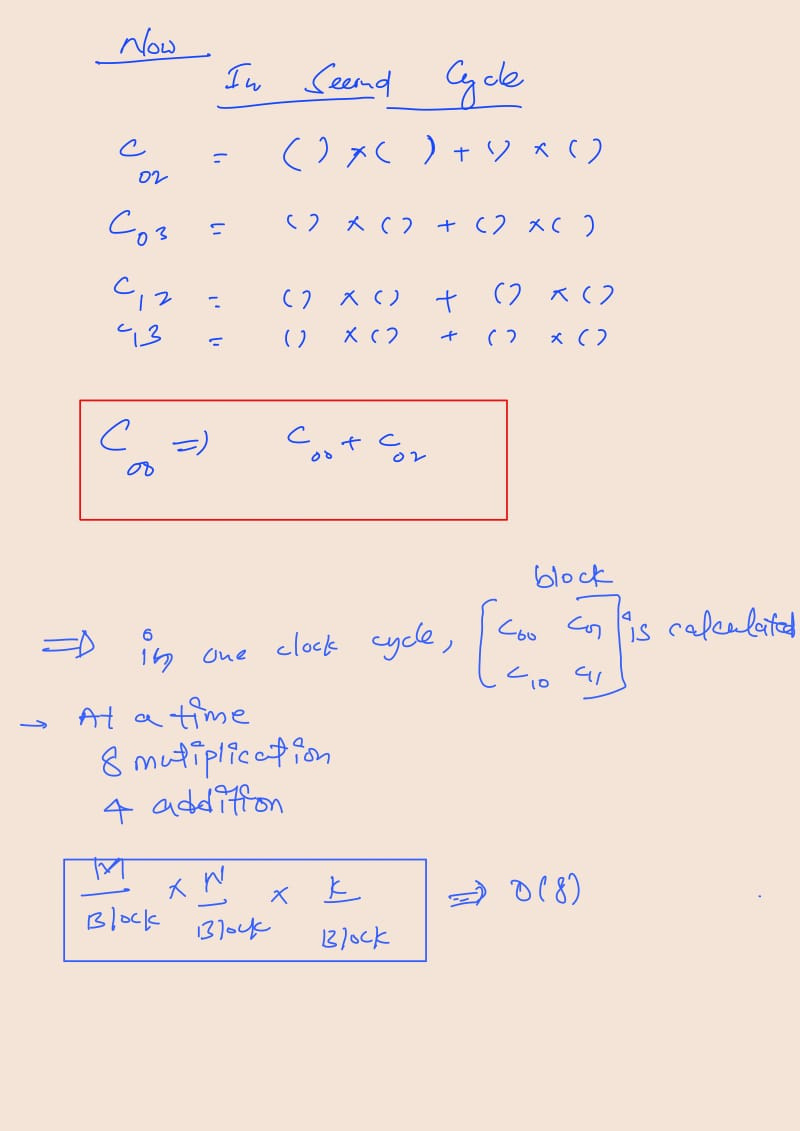 Now
In Second Cycle
C02 = ( ) × ( ) + ( ) × ( )
C03 = ( ) × ( ) + ( ) × ( )
C12 = ( ) × ( ) + ( ) × ( )
C13 = ( ) × ( ) + ( ) × ( )
C00 => C00 + C02
block
=> in one clock cycle, [C00 C01 is calculated
C10 C11]
→ At a time
8 mutiplication
4 addition
M/Block × N/Block × K/Block => O(8)